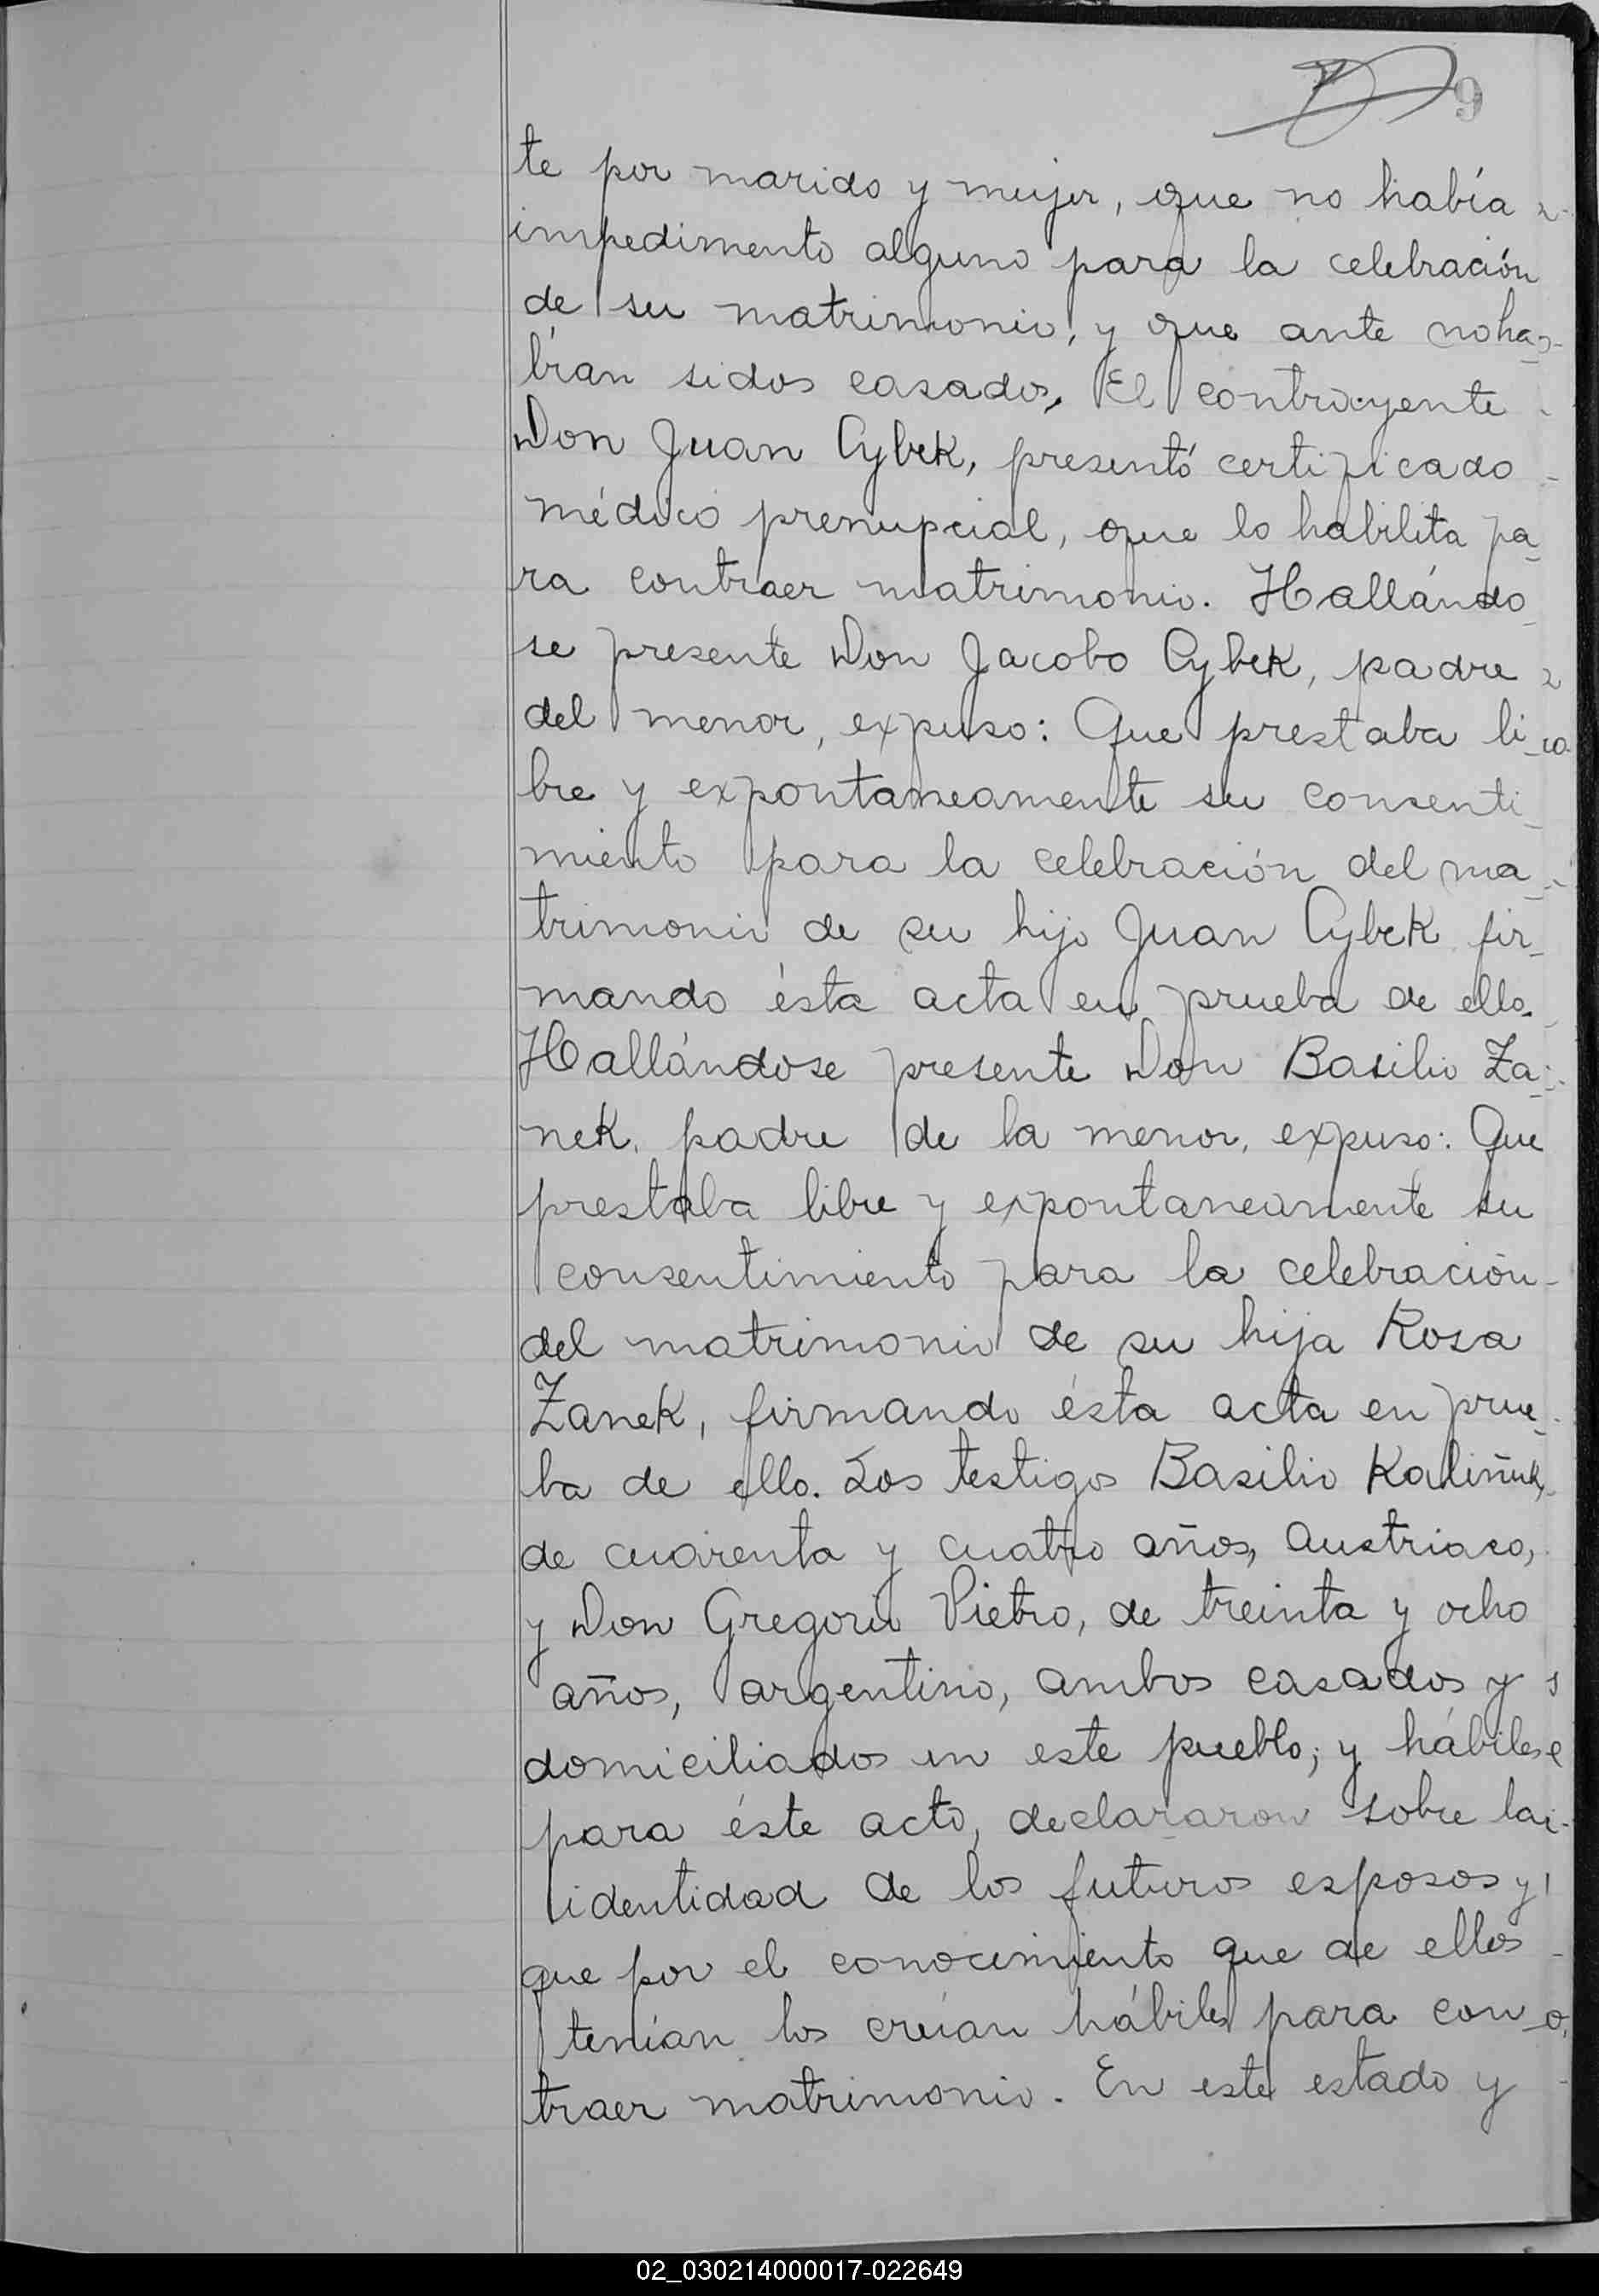 9
te por marido y mujer, que no había
impedimento alguno para la celebración
de su matrimonio, y que ante no ha-
bían sidos casados. El contrayente
Don Juan Cybek, presentó certificado
médico prenupcial, que lo habilita pa-
ra contraer matrimonio. Hallándo
se presente Don Jacobo Cybek, padre
del menor, expuso: Que prestaba li-
bre y expontaneamente su consenti-
miento para la celebración del ma-
trimonio de su hijo Juan Cybek fir-
mando ésta acta en prueba de ello.
Hallándose presente Don Basilio Za-
nek, padre de la menor, expuso: Que
prestaba libre y expontaneamente su
consentimiento para la celebración
del matrimonio de su hija Rosa
Zanek, firmando ésta acta en prue-
ba de ello. Los testigos Basilio Kaliñuk,
de cuarenta y cuatro años, austriaco,
y Don Gregorio Pietro, de treinta y ocho
años, argentino, ambos casados y
domiciliados en este pueblo; y hábiles
para éste acto, declararon sobre la
identidad de los futuros esposos y
que por el conocimiento que de ellos
tenían los creían hábiles para con-
traer matrimonio. En este estado y
02_030214000017-022649